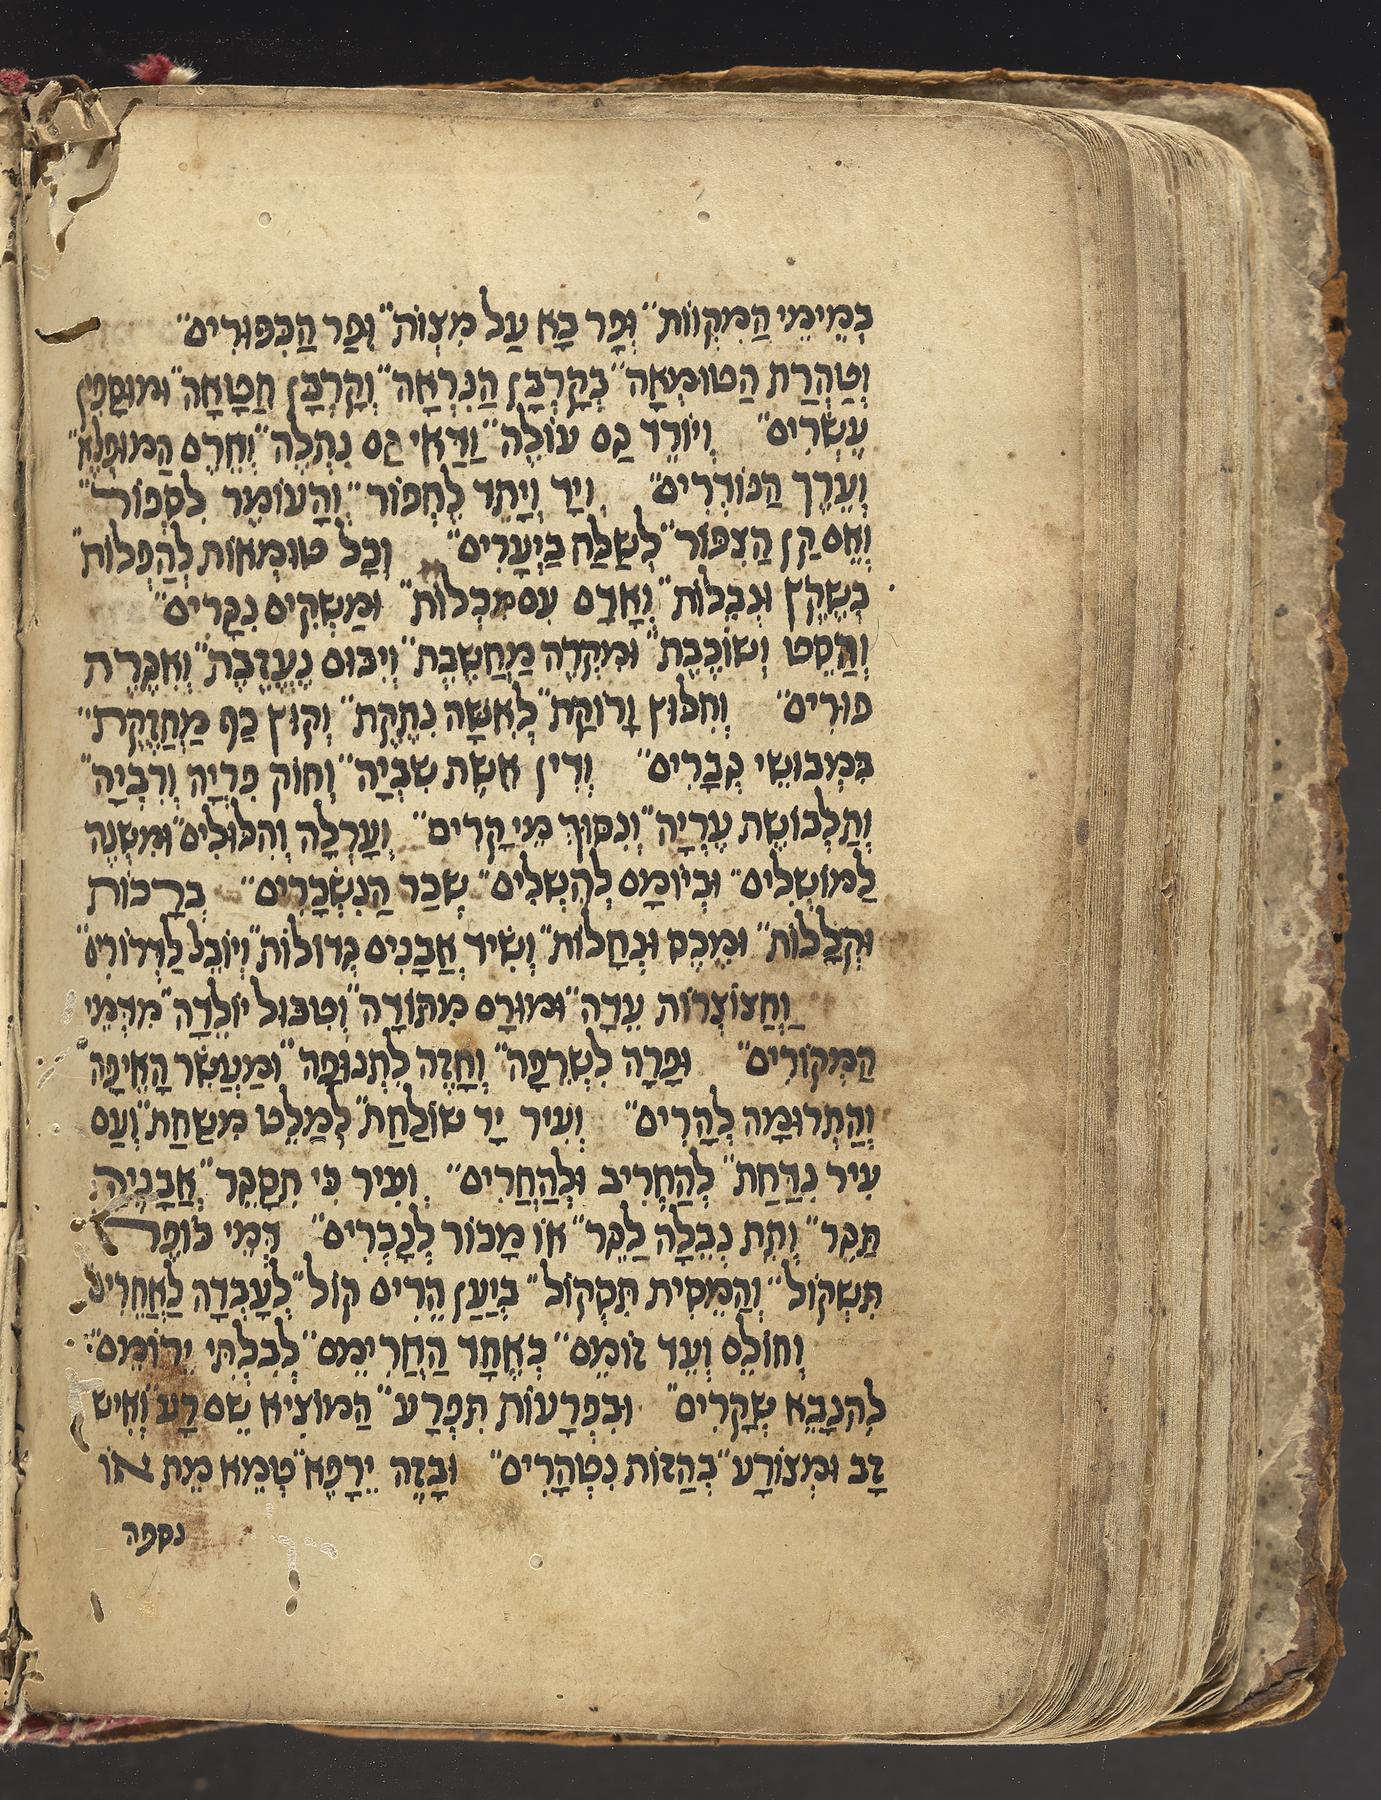 כְּמֵימֵי הַמִּקְווֹת״ וּפָר בָּא עַל מִצְוֹת״ וּפַר הַכִּפּוּרִים״
וְטַהֲרַת הַטּוּמְאָה״ בְּקָרְבָּן הַנִּרְאָה״ וְקָרְבָּן חַטָּאָה״ וּמוּסָפִין
עֶשְׂרִים״ וְיוֹרֵד קַם עוֹלֶה״ וַדַּאי גַּם נִתְלֶה״ וְחֵרֶם הַמּוּפְלָא״
וְעֵרֶךְ הַנּוֹדְרִים״ וְיָד וְיָתֵד לַחְפּוֹר״ וְהָעוֹמֶר לִסְפּוֹר״
וְאֵם קַן הַצִּפּוֹר״ לְשַׁלַּח בַּיְעָרִים״ וְכָל טוּמְאוֹת לְהַפְלוֹת״
בְּשֶׁקֶץ וּנְבֵלוֹת״ וְאָדָם עִם מַכְלוֹת״ וּמַשְׁקִים נִגָּרִים״
וְהֶסֵּט וְשׁוֹכֶבֶת״ וּמִקְרֶה מַחֲשֶׁבֶת״ וְיִבּוּם נֶעֱזֶבֶת״ וְאִגֶּרֶת
פּוּרִים״ וְחִלּוּץ וָרוֹקֶת״ לְאִשָּׁה נִתֶּקֶת״ וְקוּץ כַּף מַחֲזֶקֶת״
בִּמְבוּשֵׁי גְבָרִים״ וְדִין אֵשֶׁת שִׁבְיָה״ וְחוֹק פִּרְיָה וְרִבְיָה״
וְתַלְבּוֹשֶׁת עֶרְיָה״ וְנִסּוּךְ מֵי קָרִים״ וְעָרְלָה וְהִלּוּלִים״ וּמִשְׁנֶה
לַמּוֹשְׁלִים״ וּבְיוֹמָם לְהַשְׁלִים״ שְׂכַר הַנִּשְׂכָּרִים״ בְּרָכוֹת
וּקְלָלוֹת״ וּמֶכֶס וּנְחָלוֹת״ וְשִׂיד אֲבָנִים גְּדוֹלוֹת״ וְיוֹבֵל לַדְּרוֹרִים״
וַחֲצוֹצְרוֹת עֵדָה״ וּמוּרָם מִתּוֹדָה״ וְטִבּוּל יוֹלֵדָה״ מִדְּמֵי
הַמְּקוֹרִים״ וּפָרָה לִשְׂרֵפָה״ וְחָזֶה לִתְנוּפָה״ וּמַעֲשַׂר הָאֵיפָה״
וְהַתְּרוּמָה לְהָרִים״ וְעִיר יָד שׁוֹלַחַת״ לְמַלֵּט מִשַּׁחַת״ וְעַם
עִיר נִדַּחַת״ לְהַחֲרִיב וּלְהַחֲרִים״ וְעִיר כִּי תִסָּגֵר״ אֲבָנֶיהָ
תְּגָר״ וְתֵת נְבֵלָה לַגֵּר״ אוֹ מָכוֹר לְנָכְרִים״ דְּמֵי כּוֹפֶר
תִּשְׁקוֹל״ וְהַמֵּסִית תִּסְקוֹל״ בְּיַעַן הֵרִים קוֹל״ לְעָבְדָה לַאֲחֵרִים
וְחוֹלֵם וְעֵד זוֹמֵם״ כְּאֶחָד הַחֲרִימֵם״ לְבִלְתִּי יְרוֹמֵם״
לְהִנָּבֵא שְׁקָרִים״ וּבִפְרָעוֹת תִּפְרָע״ הַמּוֹצִיא שֵׁם רָע״ וְאִישׁ
זָב וּמְצוֹרָע״ בְּהַזּוֹת נִטְהָרִים״ וּבָזֶה יֵרָפֵא״ טְמֵא מֵת אוֹ
נספה